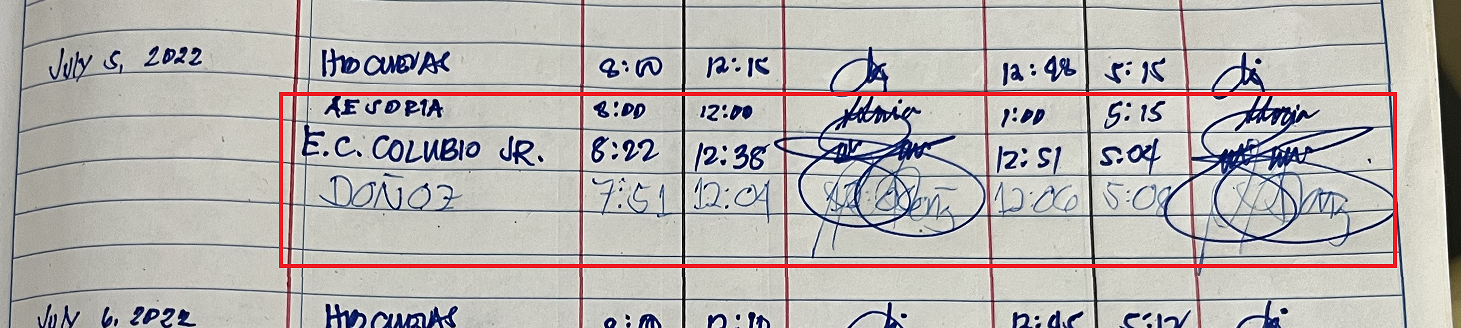 July 5, 2022 HTD CUEVAS 8:00 12:15 12:48 5:15
AESORIA 8:00 12:00 1:00 5:15
E.C. COLUBIO JR. 8:22 12:38 12:51 5:04
DOÑOZ 7:51 12:04 12:06 5:08
July 6, 2022 HTD CUEVAS 8:00 12:45 5:12